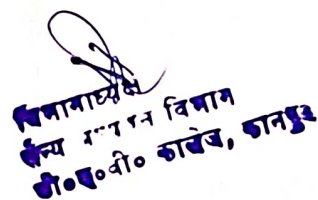 विभागाध्यक्ष
सैन्य विभाग
डी०ए०वी० कालेज, कानपुर